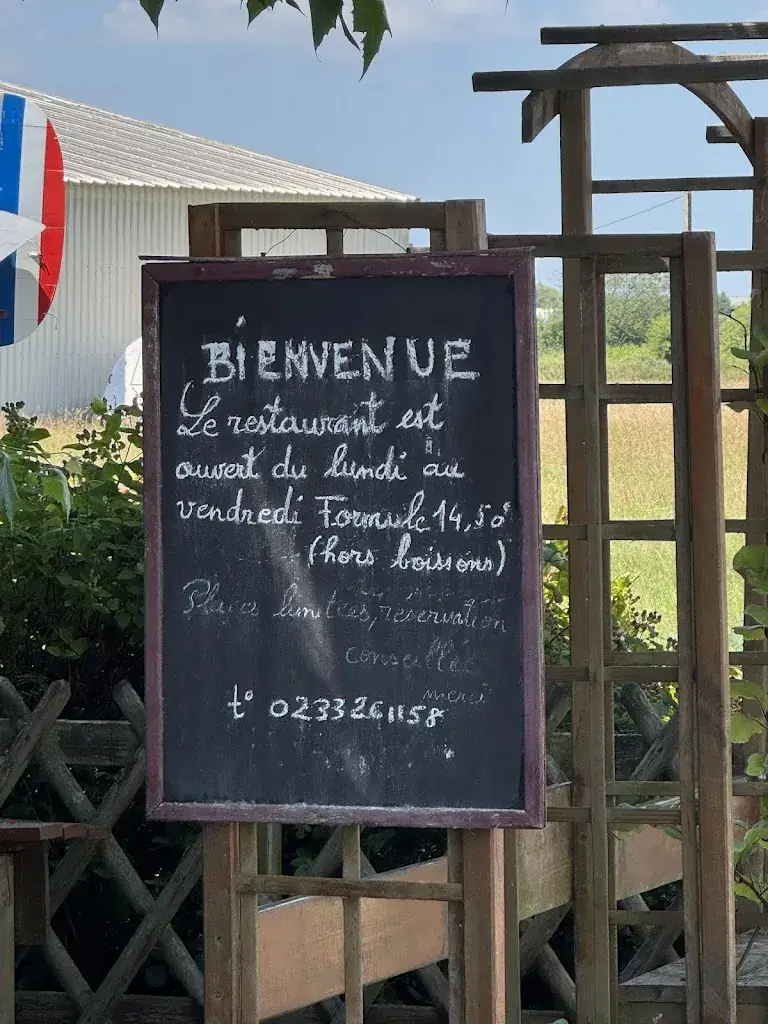 BIENVENUE
Le restaurant est
ouvert du lundi au
vendredi Formule 14,50
(hors boissons)
Places limitées, reservation
conseillée
merci
t° 0233261158